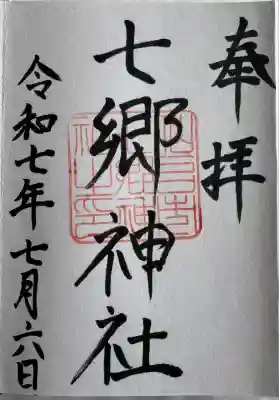 奉拝
七郷神社
令和七年七月六日